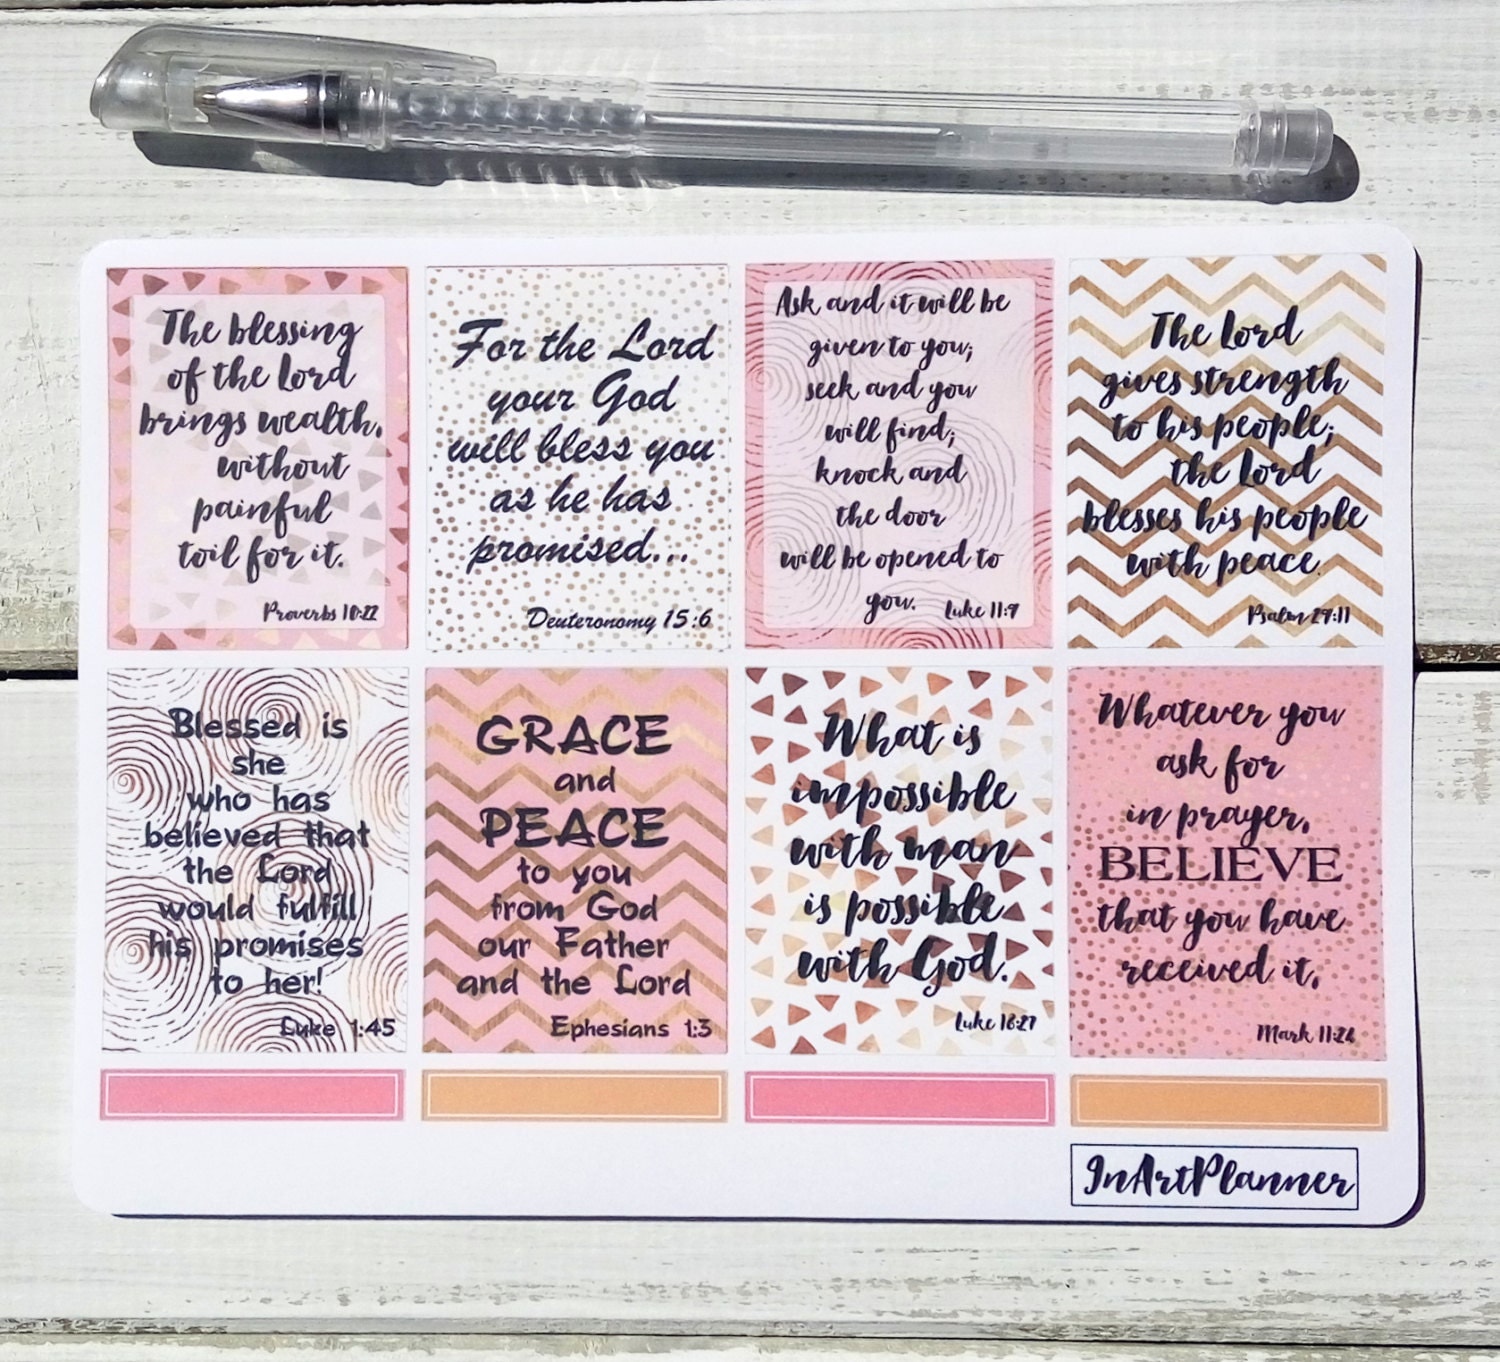 The blessing
of the Lord
brings wealth,
without
painful
toil for it.
Proverbs 10:22
For the Lord
your God
will bless you
as he has
promised...
Deuteronomy 15:6
Ask and it will be
given to you;
seek and you
will find;
knock and
the door
will be opened to
you.
Luke 11:9
The Lord
gives strength
to his people;
the Lord
blesses his people
with peace.
Psalm 29:11
Blessed is
she
who has
believed that
the Lord
would fulfill
his promises
to her!
Luke 1:45
GRACE
and
PEACE
to you
from God
our Father
and the Lord
Ephesians 1:3
What is
impossible
with man
is possible
with God.
Luke 18:27
Whatever you
ask for
in prayer,
BELIEVE
that you have
received it,
Mark 11:24
InArtPlanner